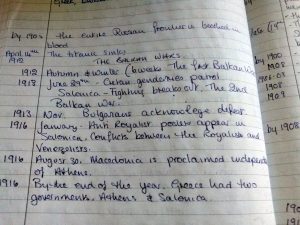 by 1908 the entire Russian frontier is bathed in
blood
April 14th The Titanic sinks
1912 THE BALKAN WARS
1912 Autumn & Winter (6 weeks The first Balkan War
1913 June 29th - Cretan gendarmes patrol
Salonica - Fighting breaks out. The 2nd
Balkan War.
1913 Nov. Bulgarians acknowledge defeat.
1916 January. Anti Royalist posters appear in
Salonica. Conflicts between the Royalists and
Venezelists.
1916 August 30. Macedonia is proclaimed independent
of Athens.
1916 By the end of the year, Greece had two
governments. Athens & Salonica.
by 1900
1908
1906-08
1908
1908
by 1908
190
191